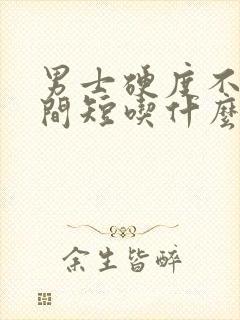 男士硬度不
間短喫什麼
余生皆醉